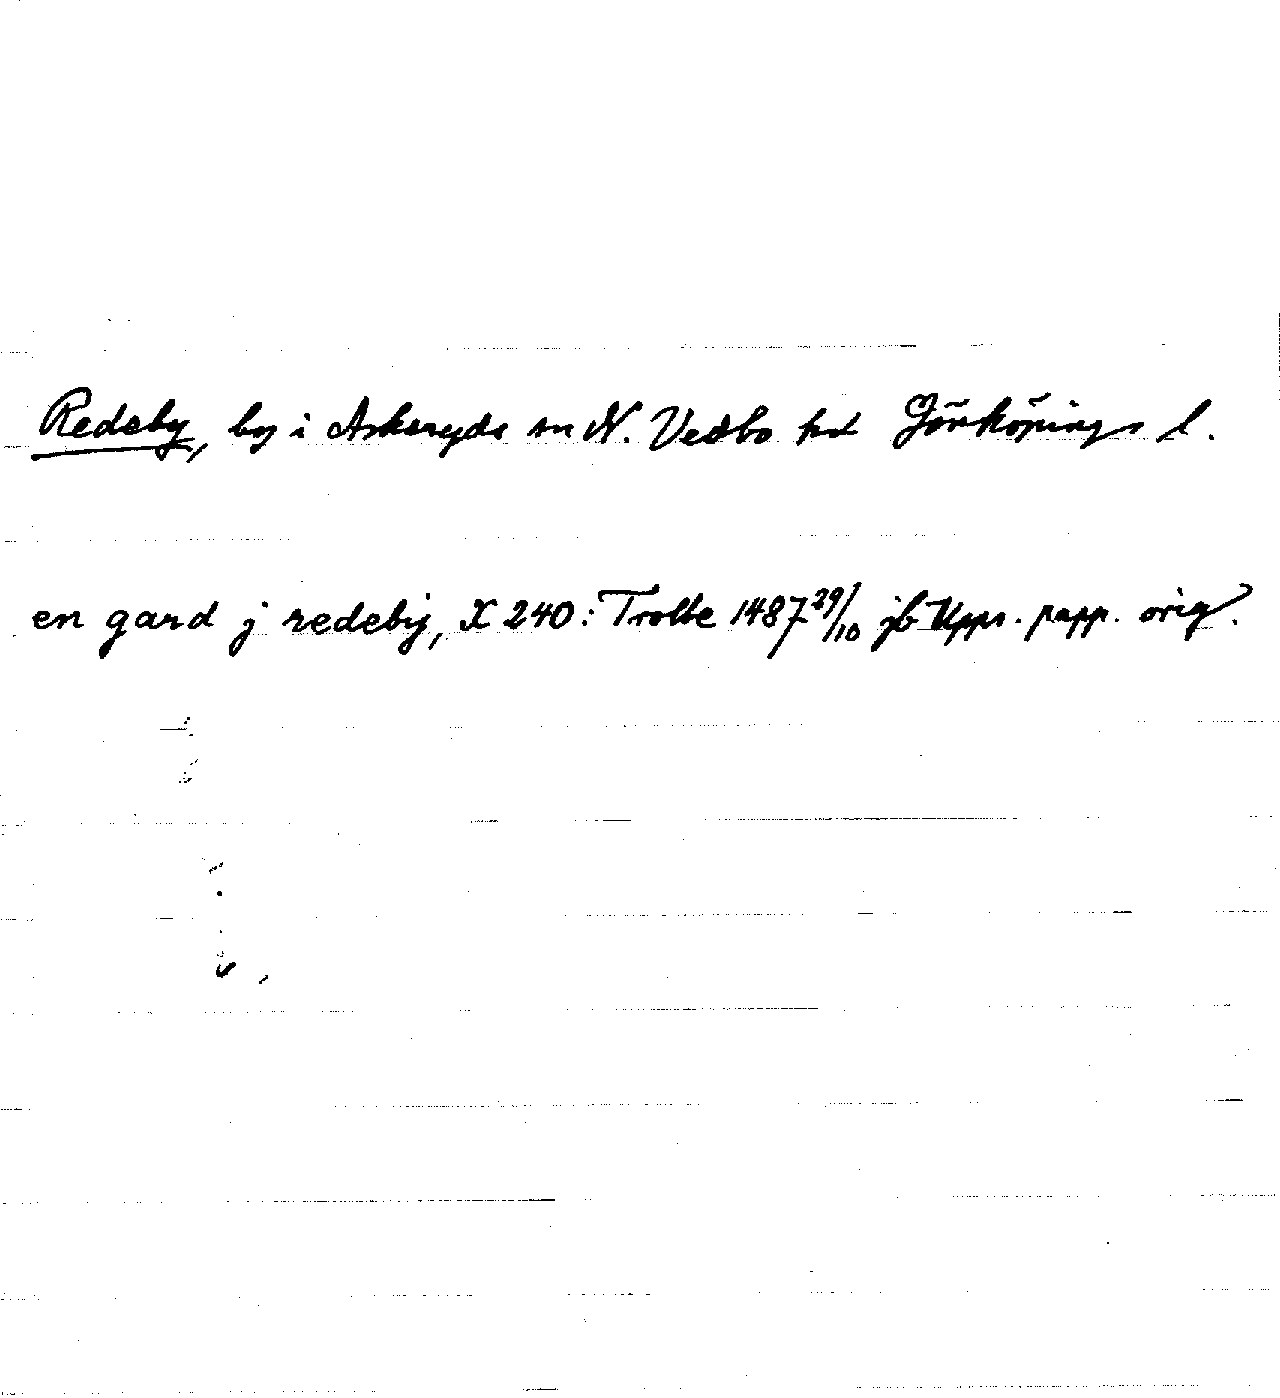 Redeby, by i Askeryds sn N. Vedbo hd Jönköpings l.
en gard j redebÿ, X 240: Trolle 1487 29/10 jb Upps. papp. orig.